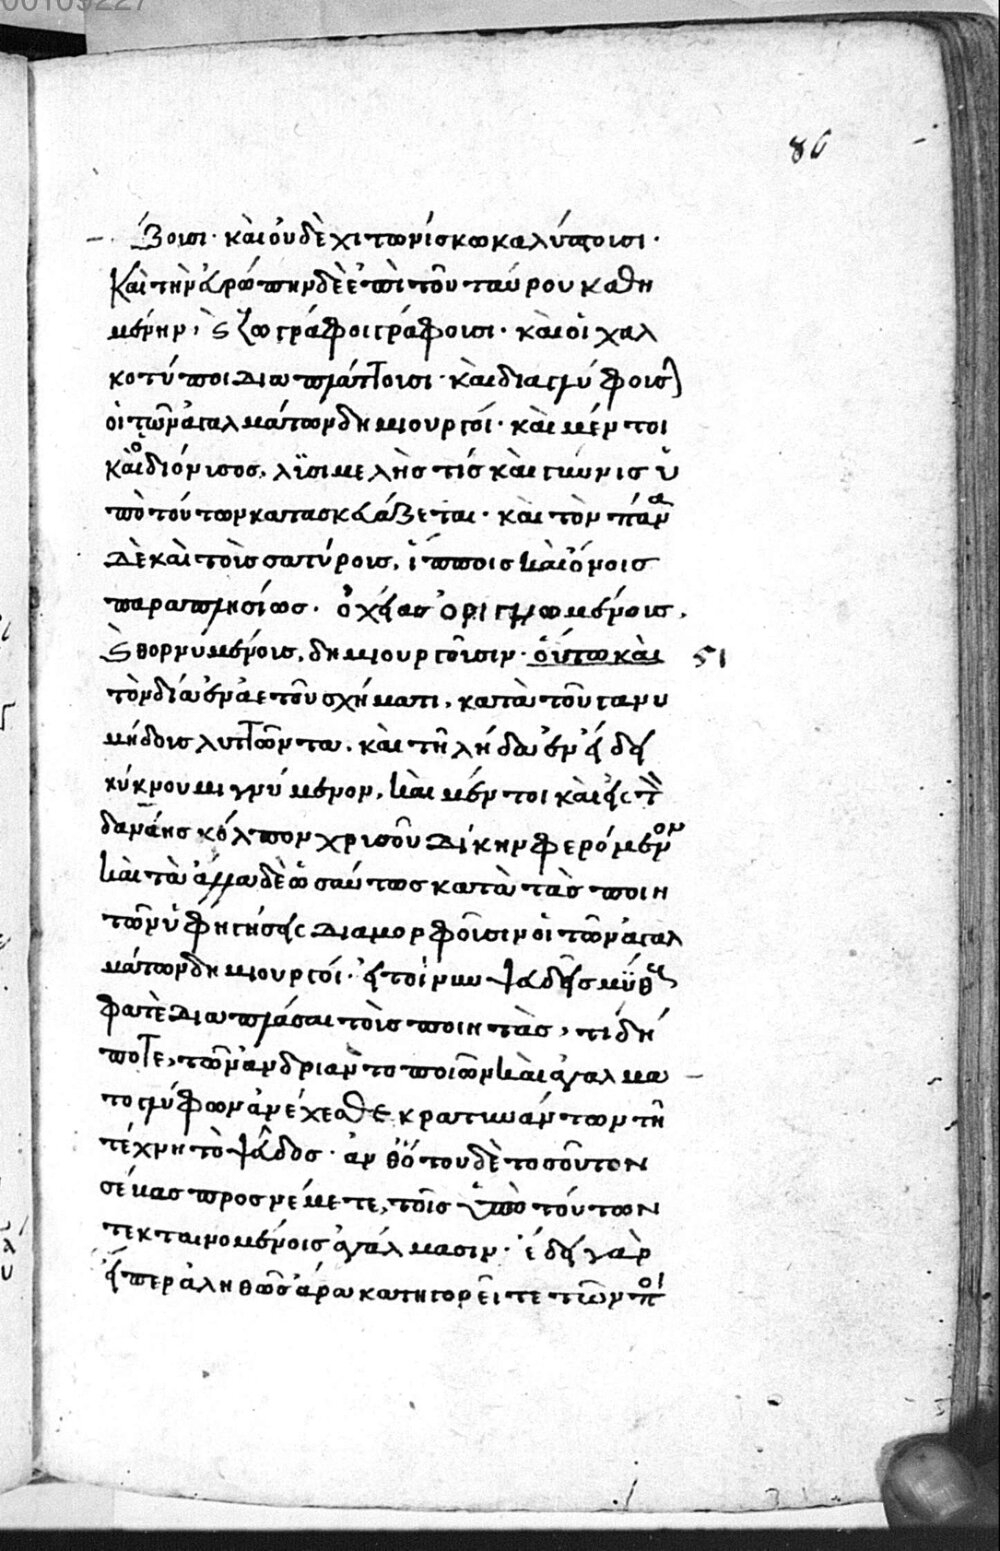 00109227
86
βουσι· καὶ οὐδὲ χιτωνίσκω καλύπτουσι·
καὶ τὴν ἐυρώπην δὲ ἐπὶ τοῦ ταύρου καθη
μένην, ὁι ζωγράφοι γράφουσι· καὶ οἱ χαλ
κοτύποι διαπλάττουσι· καὶ διαγλύφουσ
οἱ τῶν ἀγαλμάτων δημιουργοί· καὶ μέν τοι
καὶ ὁ διόνισος, λϋσιμελής τίς καὶ γύννις ὑ
πὸ τούτων κατασκευάζεται· καὶ τὸν πᾶνα
δὲ καὶ τοὺς σατύρους, ἵπποις καὶ ὄνοις
παραπλησίως· ὀχείας ὀριγνωμένους,
ὀι θορνυμένους, δημιουργοῦσιν· οὕτω καὶ 51
τὸν δία ἐν ἀετοῦ σχήματι, κατὰ τοῦ γανυ
μήδους λυττῶντα· καὶ τῇ λήδα ἐν εἴδει
κύκνου μιγνύμενον, καὶ μέν τοι καὶ εἰς τὸν
δανάης κόλπον χρισοῦ δίκην φερόμενον
καὶ τὰ ἄλλα δὲ ὡσαύτως κατὰ τὰς ποιη
τῶν ὑφηγήσεις διαμορφοῦσιν οἱ τῶν ἀγαλ
μάτων δημιουργοί· εἰ τοίνυν ψευδεῖς μύθους
φατὲ διαπλάσαι τοὺς ποιητὰς, τί δή
ποτε, τῶν ἀνδριαντοποιῶν καὶ ἀγαλμα
τογλύφων ἀνέχεσθε κρατυνάντων τῇ
τέχνη τὸ ψεῦδος· ἀνθότου δὲ τοσοῦτον
σέβας προσνέμετε, τοῖς ὑπὸ τούτων
τεκταινομένοις ἀγάλμασιν· ἔδει γὰρ
εἴπερ ἀληθῶς ἄρα κατηγορεῖτε τῶν ποι